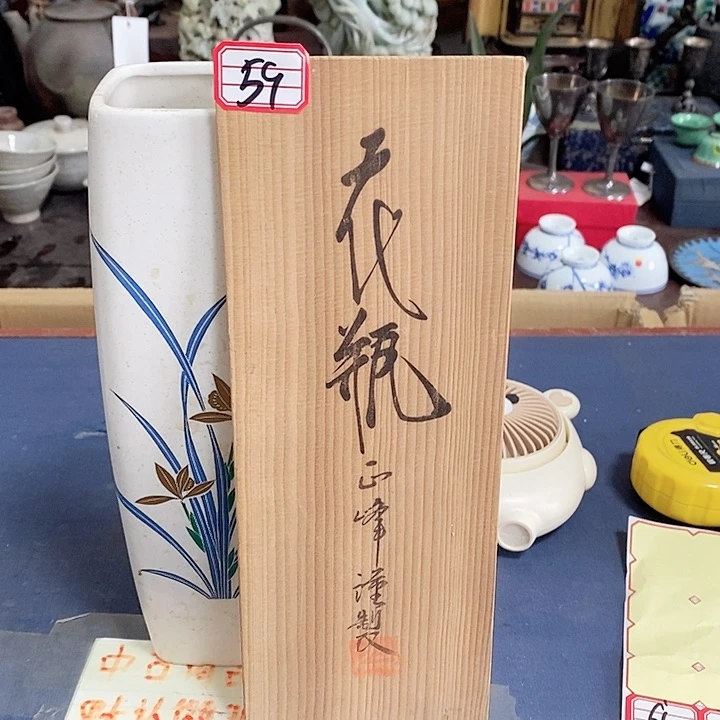 59
花瓶
正峰
謹製